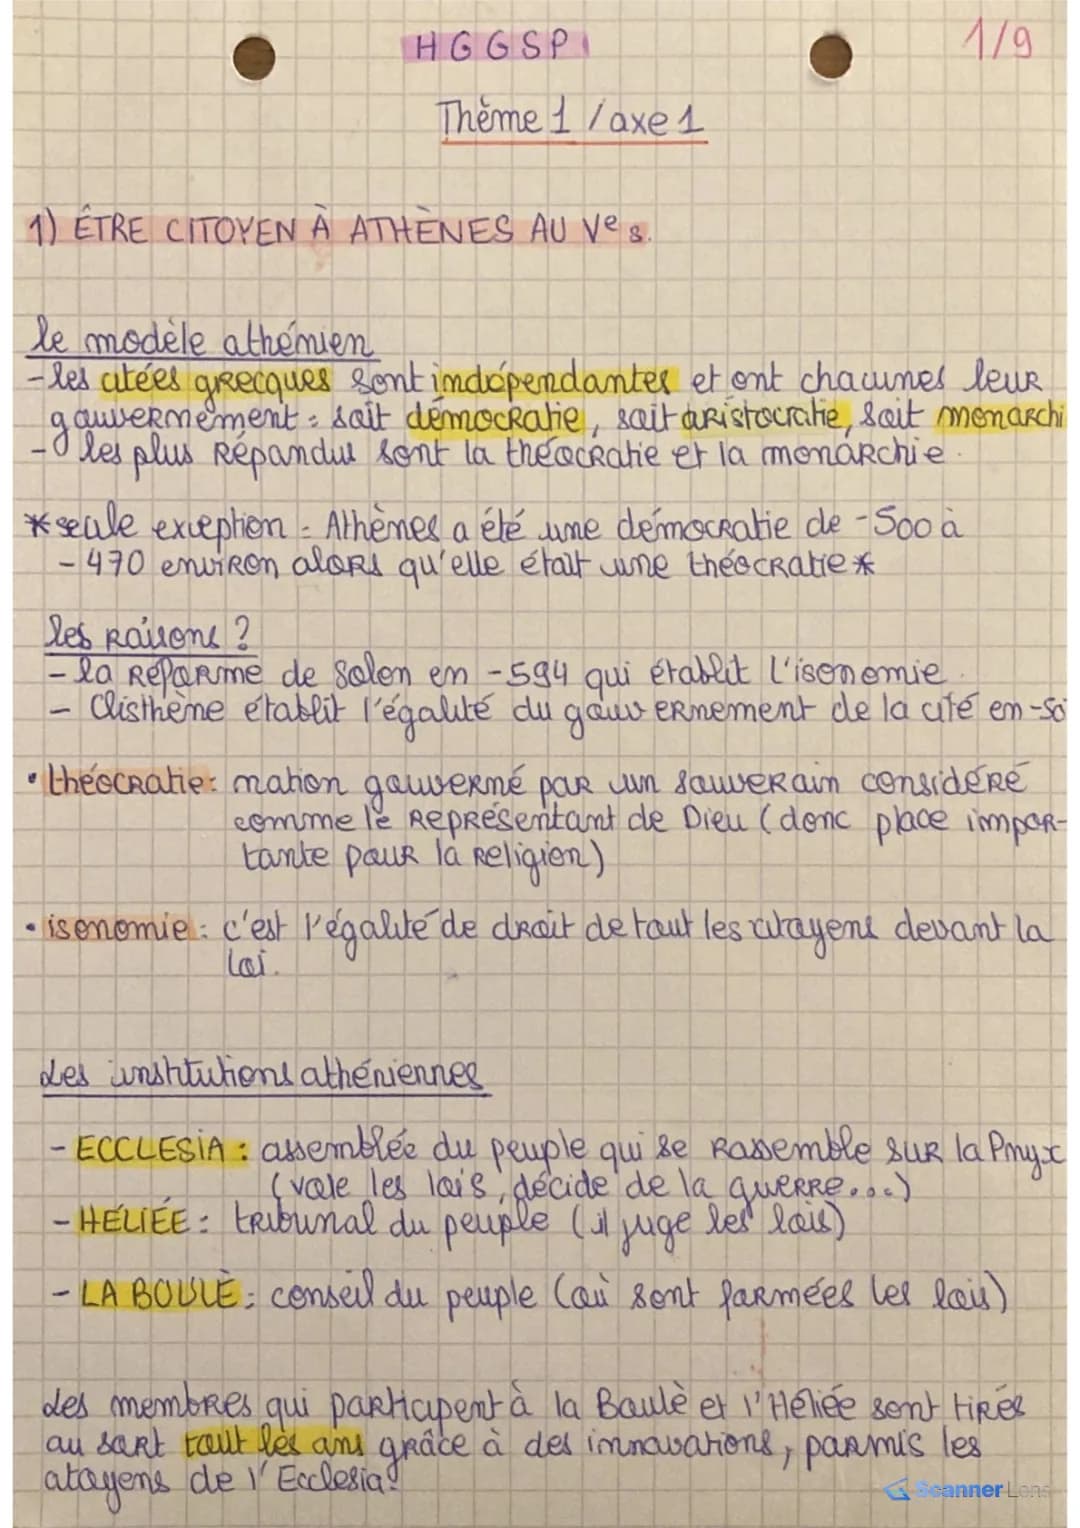 HGGSP
1/9
Thème 1 / axe 1
1) ÊTRE CITOYEN À ATHÈNES AU Ve s.
le modèle athénien
- les citées grecques sont indépendantes et ont chacunes leur
gouvernement : soit démocratie, soit aristocratie, soit monarchi
- les plus répandus sont la théocratie et la monarchie.
* seule exception : Athènes a été une démocratie de -500 à
-470 environ alors qu'elle était une théocratie *
les raisons ?
- la réforme de Solon en -594 qui établit l'isonomie.
- Clisthène établit l'égalité du gouvernement de la cité en -50
• théocratie : nation gouverné par un souverain considéré
comme le représentant de Dieu (donc place impor-
tante pour la religion)
• isonomie : c'est l'égalité de droit de tout les citoyens devant la
loi.
Les institutions athéniennes
- ECCLESIA : assemblée du peuple qui se rassemble sur la Pnyx
(vote les lois, décide de la guerre...)
- HÉLIÉE : tribunal du peuple (il juge les lois)
- LA BOULÈ : conseil du peuple (où sont formées les lois)
Les membres qui participent à la Boulè et l'Héliée sont tirés
au sort tout les ans grâce à des innovations, parmis les
citoyens de l'Ecclesia.
Scanner Lens